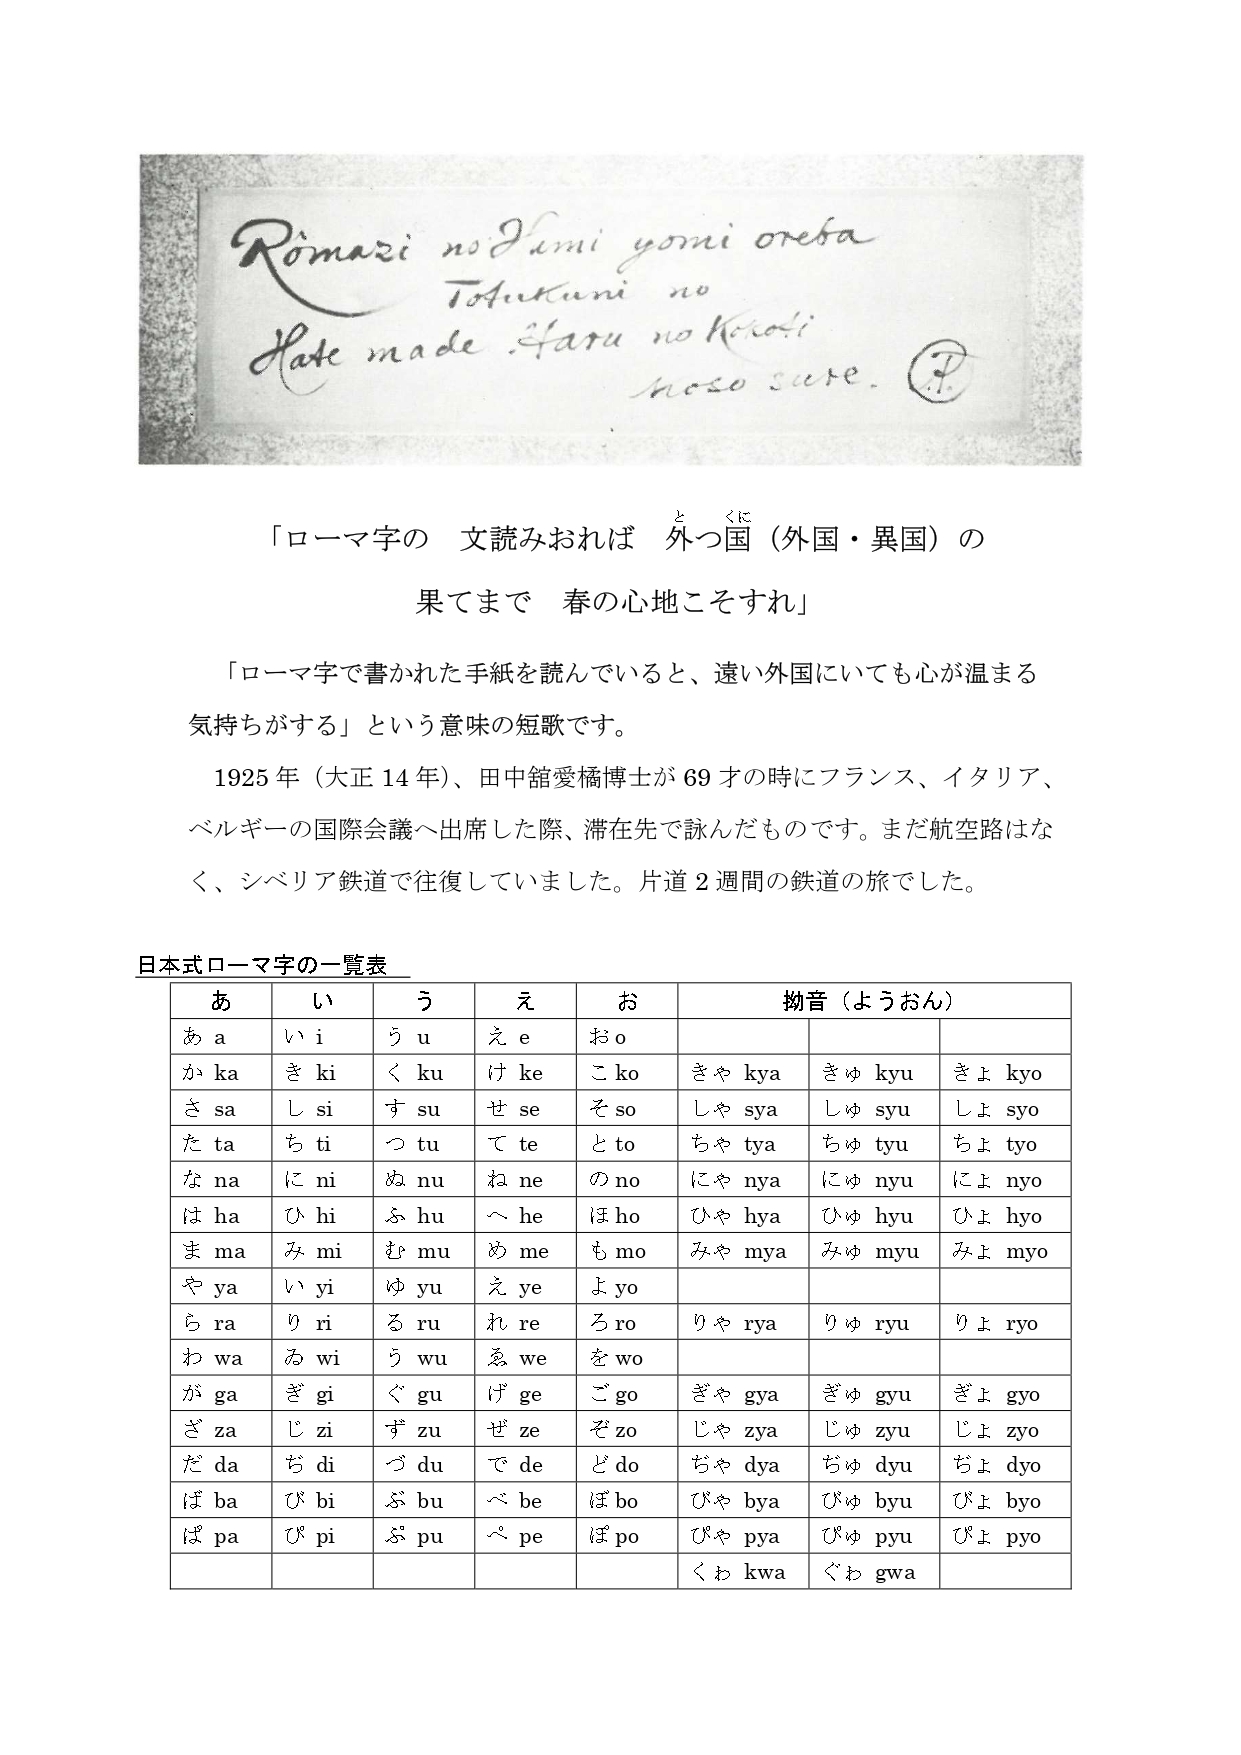 Rômazi no Fumi yomi oreba
Totukuni no
Hate made Haru no Kokoti
koso sure.
「ローマ字の　文読みおれば　外つ国（外国・異国）の
と　くに
果てまで　春の心地こそすれ」
「ローマ字で書かれた手紙を読んでいると、遠い外国にいても心が温まる
気持ちがする」という意味の短歌です。
1925 年（大正 14 年）、田中舘愛橘博士が 69 才の時にフランス、イタリア、
ベルギーの国際会議へ出席した際、滞在先で詠んだものです。まだ航空路はな
く、シベリア鉄道で往復していました。片道 2 週間の鉄道の旅でした。
日本式ローマ字の一覧表
あ い う え お 拗音（ようおん）
あ a い i う u え e お o
か ka き ki く ku け ke こ ko きゃ kya きゅ kyu きょ kyo
さ sa し si す su せ se そ so しゃ sya しゅ syu しょ syo
た ta ち ti つ tu て te と to ちゃ tya ちゅ tyu ちょ tyo
な na に ni ぬ nu ね ne の no にゃ nya にゅ nyu にょ nyo
は ha ひ hi ふ hu へ he ほ ho ひゃ hya ひゅ hyu ひょ hyo
ま ma み mi む mu め me も mo みゃ mya みゅ myu みょ myo
や ya い yi ゆ yu え ye よ yo
ら ra り ri る ru れ re ろ ro りゃ rya りゅ ryu りょ ryo
わ wa ゐ wi う wu ゑ we を wo
が ga ぎ gi ぐ gu げ ge ご go ぎゃ gya ぎゅ gyu ぎょ gyo
ざ za じ zi ず zu ぜ ze ぞ zo じゃ zya じゅ zyu じょ zyo
だ da ぢ di づ du で de ど do ぢゃ dya ぢゅ dyu ぢょ dyo
ば ba び bi ぶ bu べ be ぼ bo びゃ bya びゅ byu びょ byo
ぱ pa ぴ pi ぷ pu ぺ pe ぽ po ぴゃ pya ぴゅ pyu ぴょ pyo
くゎ kwa ぐゎ gwa